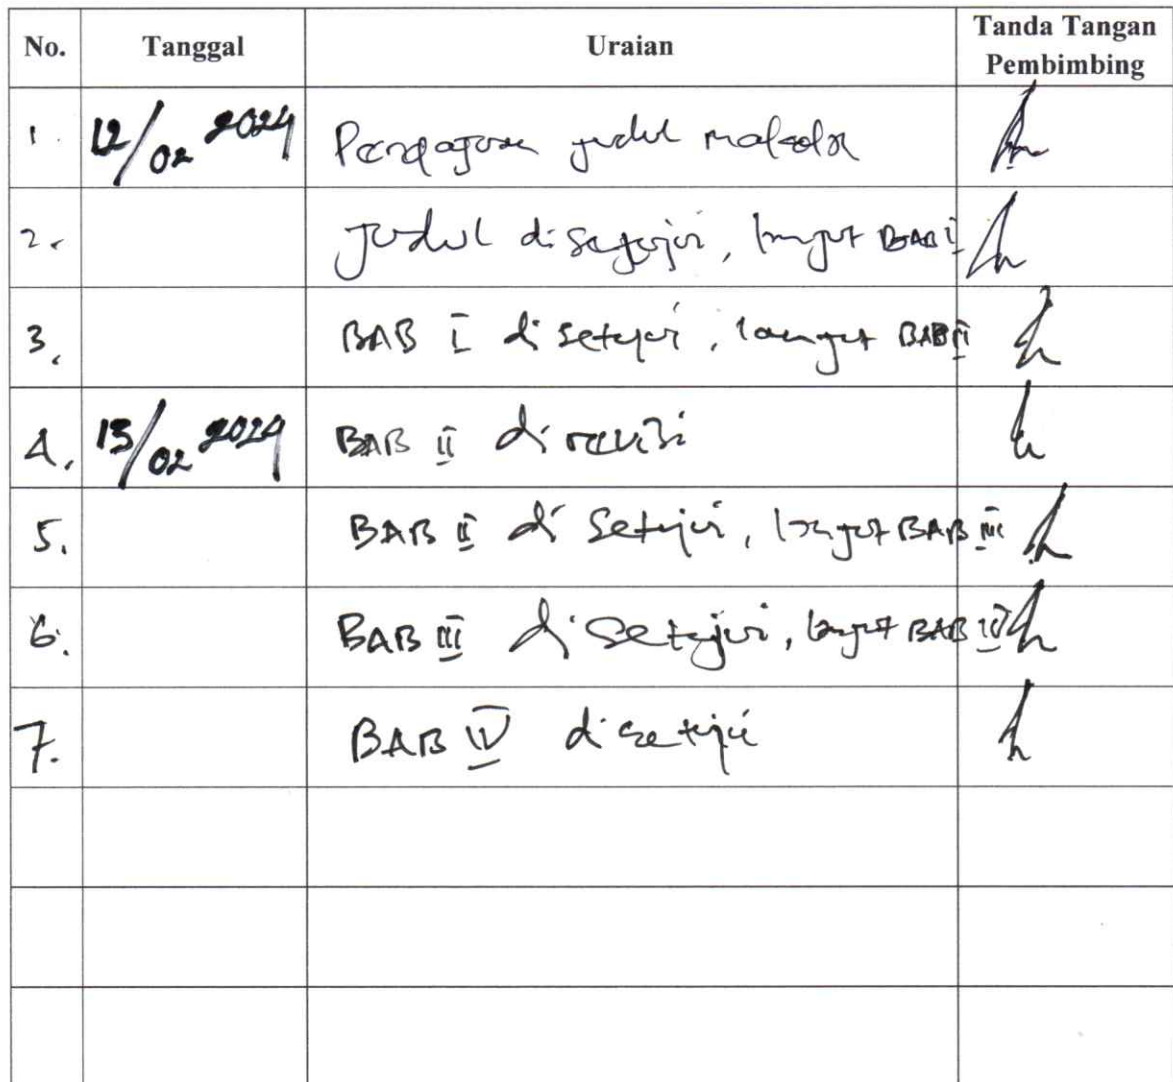 No. Tanggal Uraian Tanda Tangan Pembimbing
1. 12/02 2024 Pengajuan judul makalah
2. Judul disetujui, lanjut BAB I
3. BAB I disetujui, lanjut BAB II
4. 13/02 2024 BAB II direvisi
5. BAB II disetujui, lanjut BAB III
6. BAB III disetujui, lanjut BAB IV
7. BAB IV disetujui